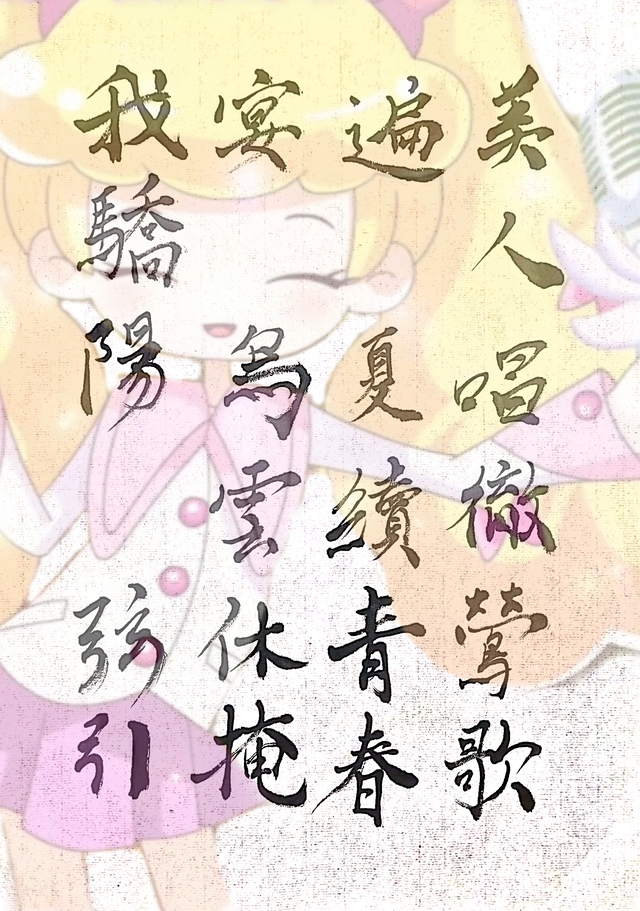 美人唱徹鶯歌
遍 夏續青春
宴 烏雲休掩
我驕陽 弦引